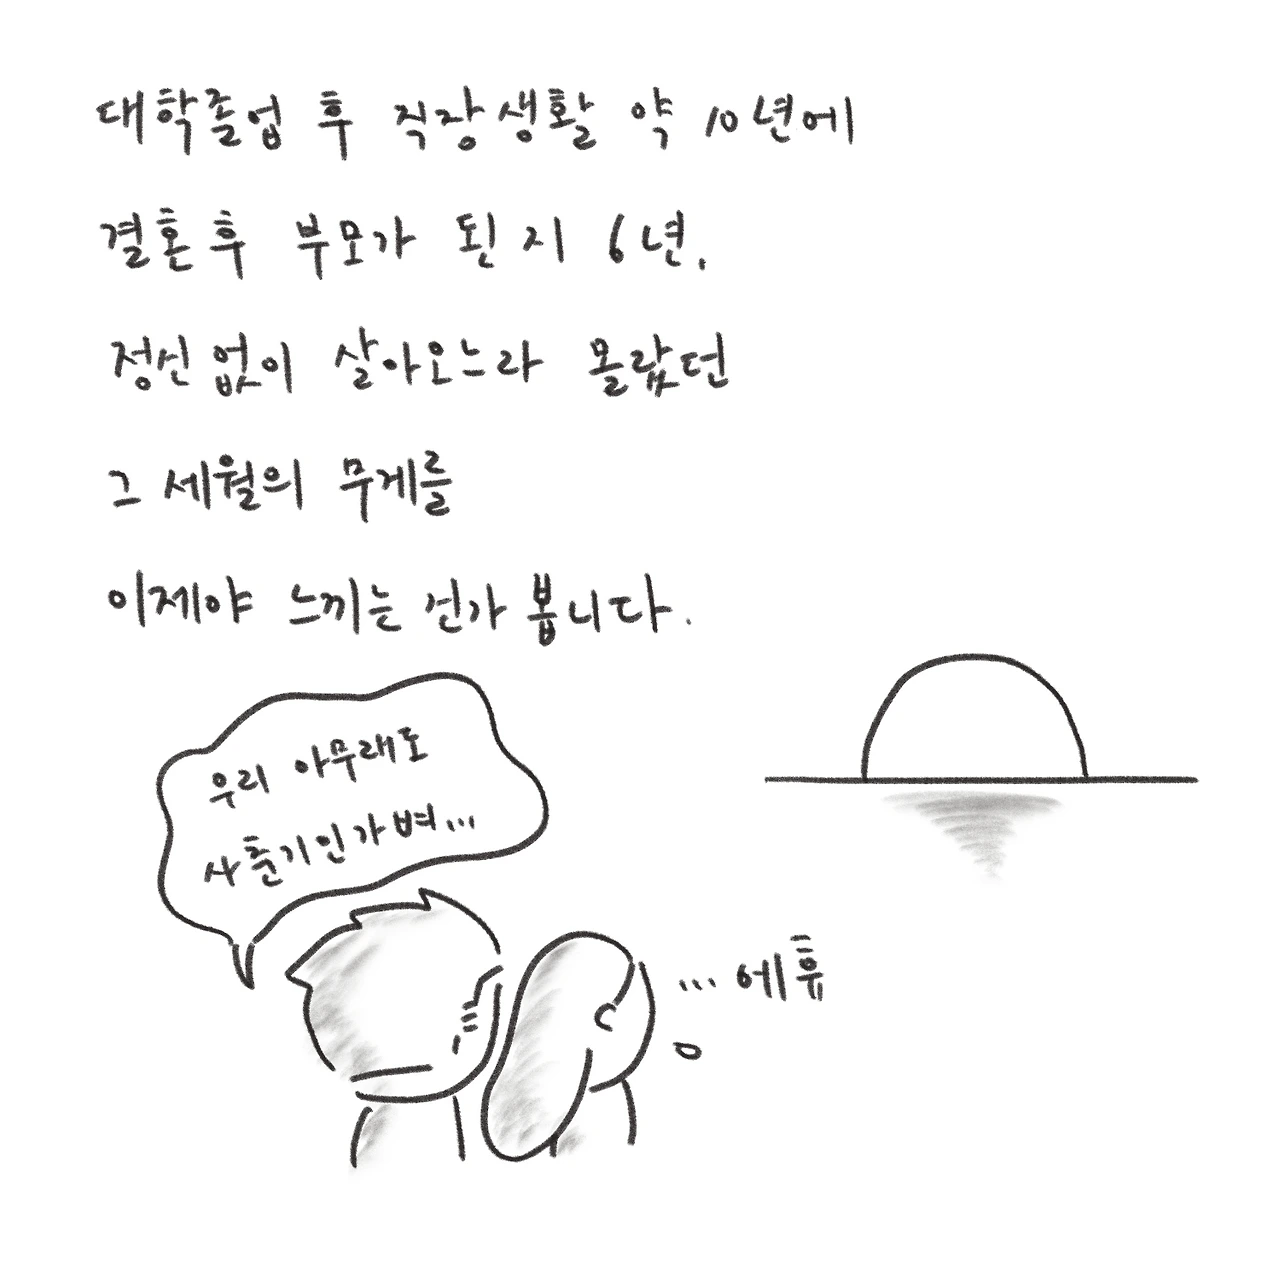 대학졸업 후 직장생활 약 10년에
결혼후 부모가 된지 6년.
정신없이 살아오느라 몰랐던
그 세월의 무게를
이제야 느끼는 건가 봅니다.
우리 아무래도
사춘기인가벼...
... 에휴